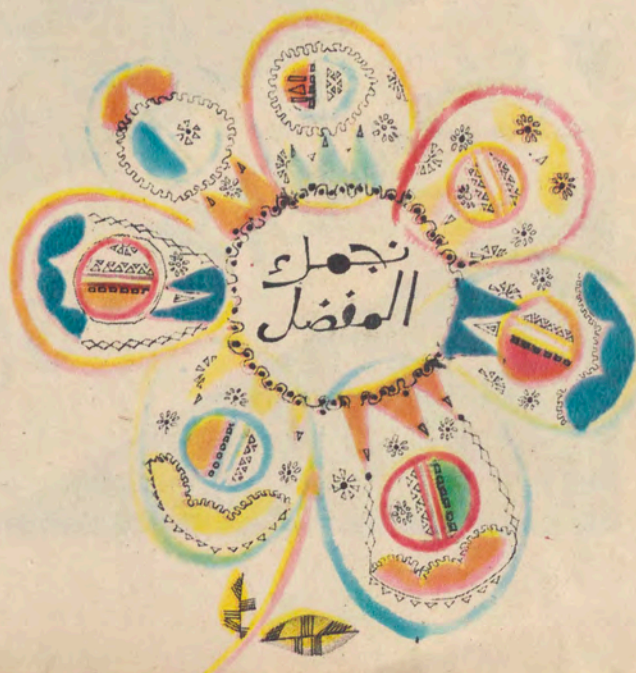 نجمك
المفضل